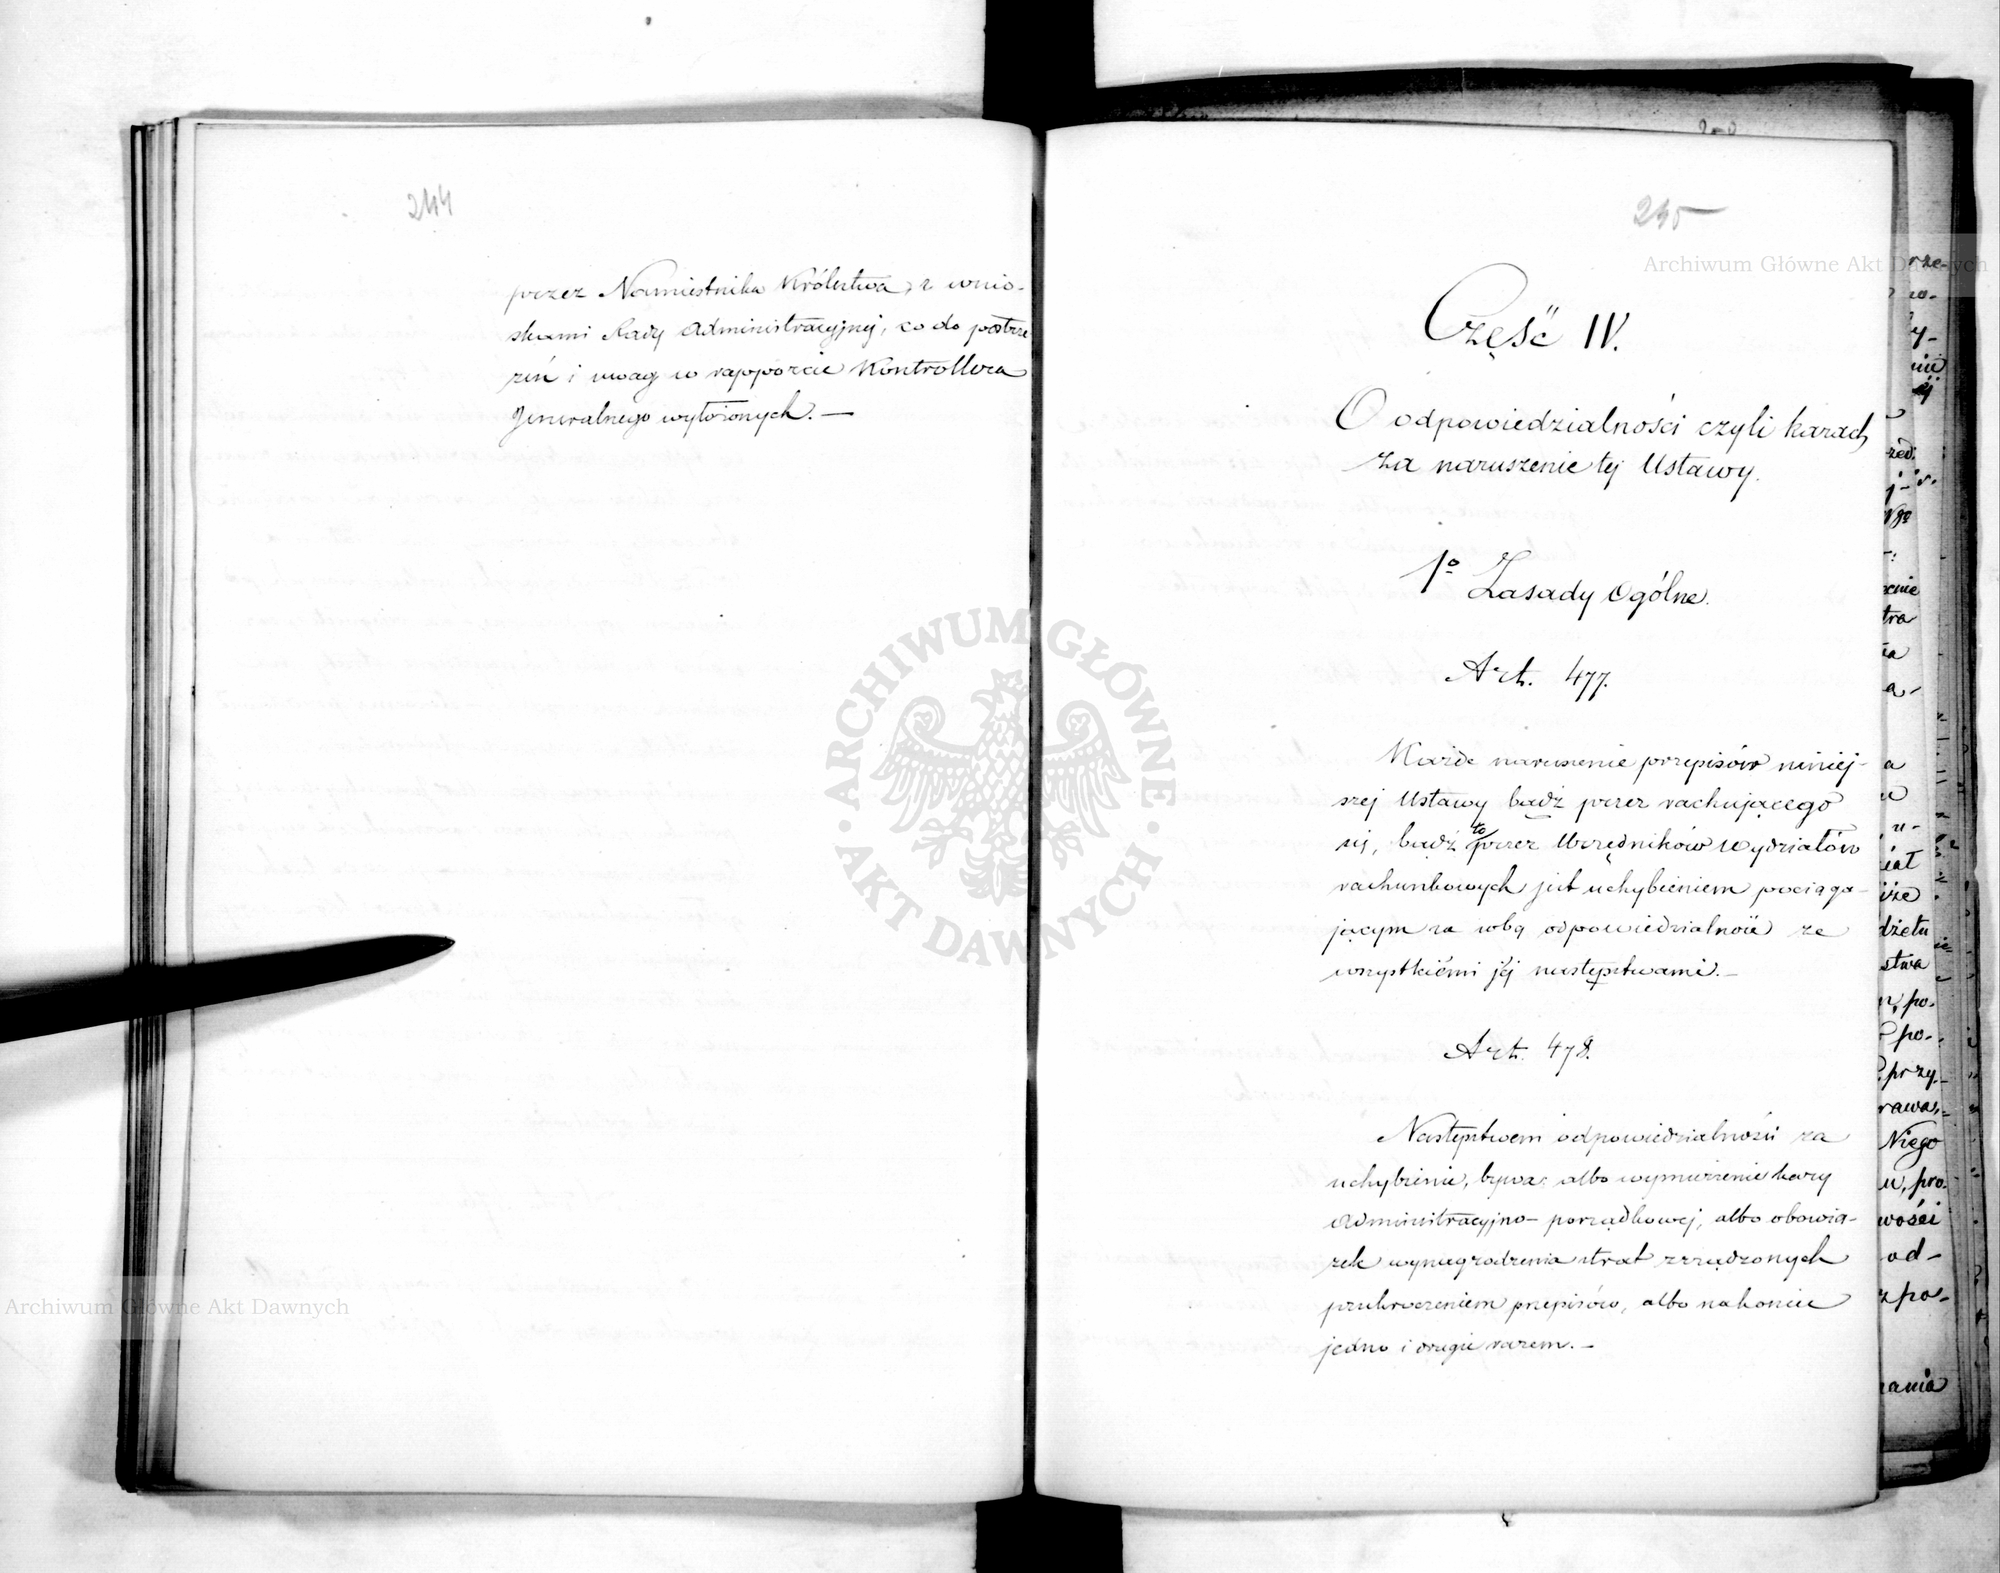 244
przez Namiestnika Królestwa, z wnio-
skami Rady Administracyjnej, co do postrze
żeń i uwag w rapporcie Kontrollera
Jeneralnego wyłożonych. —
245
Część IV.
O odpowiedzialności czyli karach
za naruszenie tej Ustawy.
1º Zasady Ogólne.
Art. 477.
Każde naruszenie przepisów niniej-
szej Ustawy bądź przez rachującego
się, bądź to przez Urzędników Wydziałów
rachunkowych jest uchybieniem pociąga-
jącym za sobą odpowiedzialność ze
wszystkiémi jéj następstwami. —
Art. 478.
Następstwem odpowiedzialności za
uchybienie, bywa: albo wymierzenie kary
Administracyjno-porządkowej, albo obowią-
zek wynagrodzenia strat zrządzonych
przekroczeniem przepisów, albo nakoniec
jedno i drugie razem. —
Archiwum Główne Akt Dawnych
ARCHIWUM GŁÓWNE
AKT DAWNYCH
Archiwum Główne Akt Dawnych